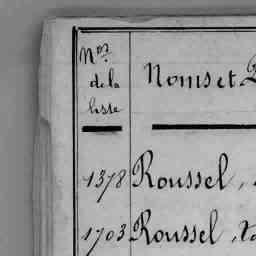 Nos
de la
liste
Noms et
1378 Roussel,
1703 Roussel,